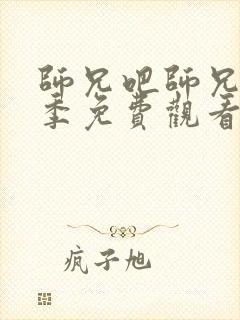 師兄吧師兄
季免費觀看
疯子旭